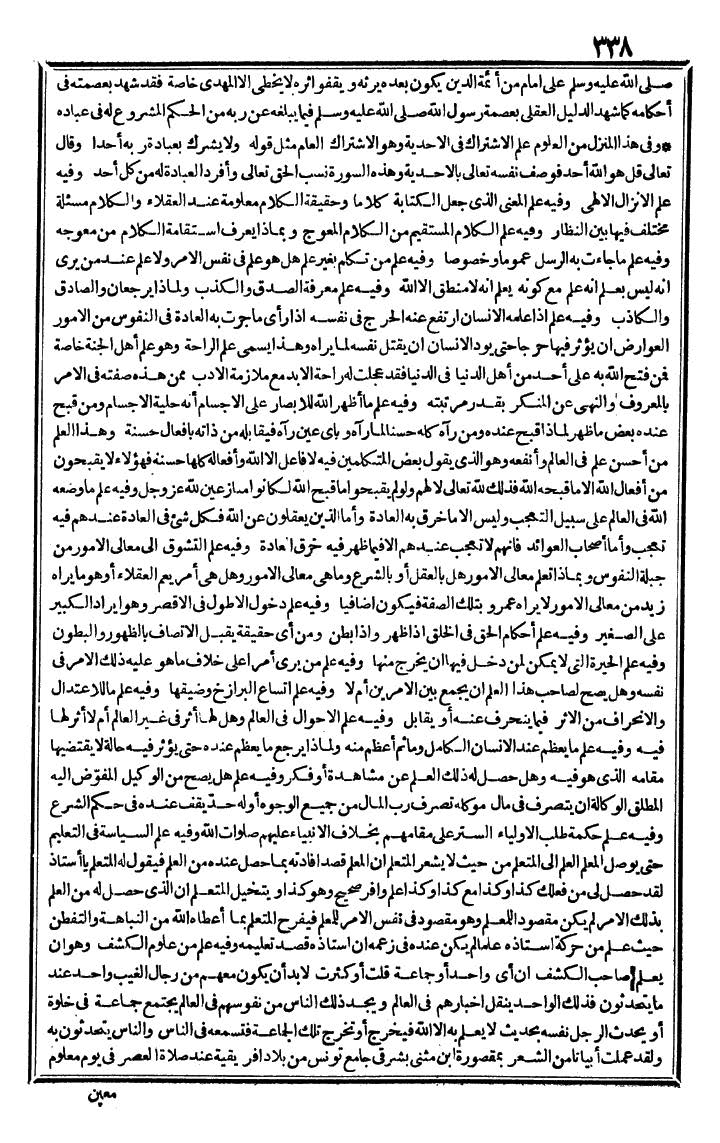 ٣٣٨
صلى الله عليه وسلم على امام من أئمة الدين يكون بعده يرثه ويقفو اثره لا يخطئ الا المهدى خاصة فقد شهد بعصمته فى
أحكامه كما شهد الدليل العقلى بعصمة رسول الله صلى الله عليه وسلم فيما يبلغه عن ربه من الحكم المشروع له فى عباده
*وفى هذا المنزل من العلوم علم الاشتراك فى الاحدية وهو الاشتراك العام مثل قوله ولا يشرك بعبادة ربه أحدا وقال
تعالى قل هو الله أحد فوصف نفسه تعالى بالاحدية وهذه السورة نسب الحق تعالى وأفرد العبادة له من كل أحد وفيه
علم الانزال الالهى وفيه علم المعنى الذى جعل الكتابة كلاما وحقيقة الكلام معلومة عند العقلاء والكلام مسئلة
مختلف فيها بين النظار وفيه علم الكلام المستقيم من الكلام المعوج وبماذا يعرف استقامة الكلام من معوجه
وفيه علم ما جاءت به الرسل عموما وخصوصا وفيه علم من تكلم بغير علم هل هو علم فى نفس الامر ولا علم عند من يرى
انه ليس بعلم انه علم مع كونه يعلم انه لا منطق الا الله وفيه علم معرفة الصدق والكذب ولماذا يرجعان والصادق
والكاذب وفيه علم اذا علمه الانسان ارتفع عنه الحرج فى نفسه اذا رأى ما جرت به العادة فى النفوس من الامور
العوارض ان يؤثر فيها حرجا حتى يود الانسان ان يقتل نفسه لما يراه وهذا يسمى علم الراحة وهو علم أهل الجنة خاصة
فمن فتح الله به على أحد من أهل الدنيا فى الدنيا فقد عجلت له راحة الابد مع ملازمة الادب ممن هذه صفته فى الامر
بالمعروف والنهى عن المنكر بقدر مرتبته وفيه علم ما أظهر الله للابصار على الاجسام أنه حلية الاجسام ومن قبح
عنده بعض ما ظهر لماذا قبح عنده ومن رآه كله حسنا لما رآه وباى عين رآه فيقابله من ذاته بافعال حسنة وهذا العلم
من أحسن علم فى العالم وأنفعه وهو الذى يقول بعض المتكلمين فيه لا فاعل الا الله وأفعاله كلها حسنة فهؤلاء لا يقبحون
من أفعال الله الا ما قبحه الله فذلك لله تعالى لا لهم ولو لم يقبحوا ما قبح الله لكانوا منازعين لله عز وجل وفيه علم ما وضعه
الله فى العالم على سبيل التعجب وليس الا ما خرق به العادة وأما الذين يعقلون عن الله فكل شئ فى العادة عندهم فيه
تعجب وأما أصحاب العوائد فانهم لا تعجب عندهم الا فيما ظهر فيه خرق العادة وفيه علم التشوق الى معالى الامور من
جبلة النفوس وبماذا تعلم معالى الامور هل بالعقل أو بالشرع وما هى معالى الامور وهل هى أمر يعم العقلاء أو هو ما يراه
زيد من معالى الامور لا يراه عمرو بتلك الصفة فيكون اضافيا وفيه علم دخول الاطول فى الاقصر وهو ايراد الكبير
على الصغير وفيه علم أحكام الحق فى الخلق اذا ظهر واذا بطن ومن أى حقيقة يقبل الاتصاف بالظهور والبطون
وفيه علم الحيرة التى لا يمكن لمن دخل فيها ان يخرج منها وفيه علم من يرى أمرا على خلاف ما هو عليه ذلك الامر فى
نفسه وهل يصح لصاحب هذا العلم ان يجمع بين الامرين أم لا وفيه علم اتساع البرازخ وضيقها وفيه علم ما للاعتدال
والانحراف من الاثر فيما ينحرف عنه أو يقابل وفيه علم الاحوال فى العالم وهل لها أثر فى غير العالم أم لا أثر لها
فيه وفيه علم ما يعظم عند الانسان الكامل وما ثم أعظم منه ولماذا يرجع ما يعظم عنده حتى يؤثر فيه حالة لا يقتضيها
مقامه الذى هو فيه وهل حصل له ذلك العلم عن مشاهدة أو فكر وفيه علم هل يصح من الوكيل المفوّض اليه
المطلق الوكالة ان يتصرف فى مال موكله تصرف رب المال من جميع الوجوه أو له حدّ يقف عنده فى حكم الشرع
وفيه علم حكمة طلب الاولياء الستر على مقامهم بخلاف الانبياء عليهم صلوات الله وفيه علم السياسة فى التعليم
حتى يوصل المعلم العلم الى المتعلم من حيث لا يشعر المتعلم ان المعلم قصد افادته بما حصل عنده من العلم فيقول له المتعلم يا أستاذ
لقد حصل لى من فعلك كذا وكذا مع كذا وكذا علم وافر صحيح وهو كذا ويتخيل المتعلم ان الذى حصل له من العلم
بذلك الامر لم يكن مقصودا للمعلم وهو مقصود فى نفس الامر للمعلم فيفرح المتعلم بما أعطاه الله من النباهة والتفطن
حيث علم من حركة استاذه علما لم يكن عنده فى زعمه ان استاذه قصد تعليمه وفيه علم من علوم الكشف وهو ان
يعلم صاحب الكشف ان أى واحد أو جماعة قلت أو كثرت لا بد أن يكون معهم من رجال الغيب واحد عند
ما يتحدثون فذلك الواحد ينقل اخبارهم فى العالم ويجد ذلك الناس من نفوسهم فى العالم يجتمع جماعة فى خلوة
أو يحدث الرجل نفسه بحديث لا يعلم به الا الله فيخرج أو تخرج تلك الجماعة فتسمعه فى الناس والناس يتحدثون به
ولقد عملت أبياتا من الشعر بمقصورة ابن مثنى بشرقى جامع تونس من بلاد افريقية عند صلاة العصر فى يوم معلوم
معين